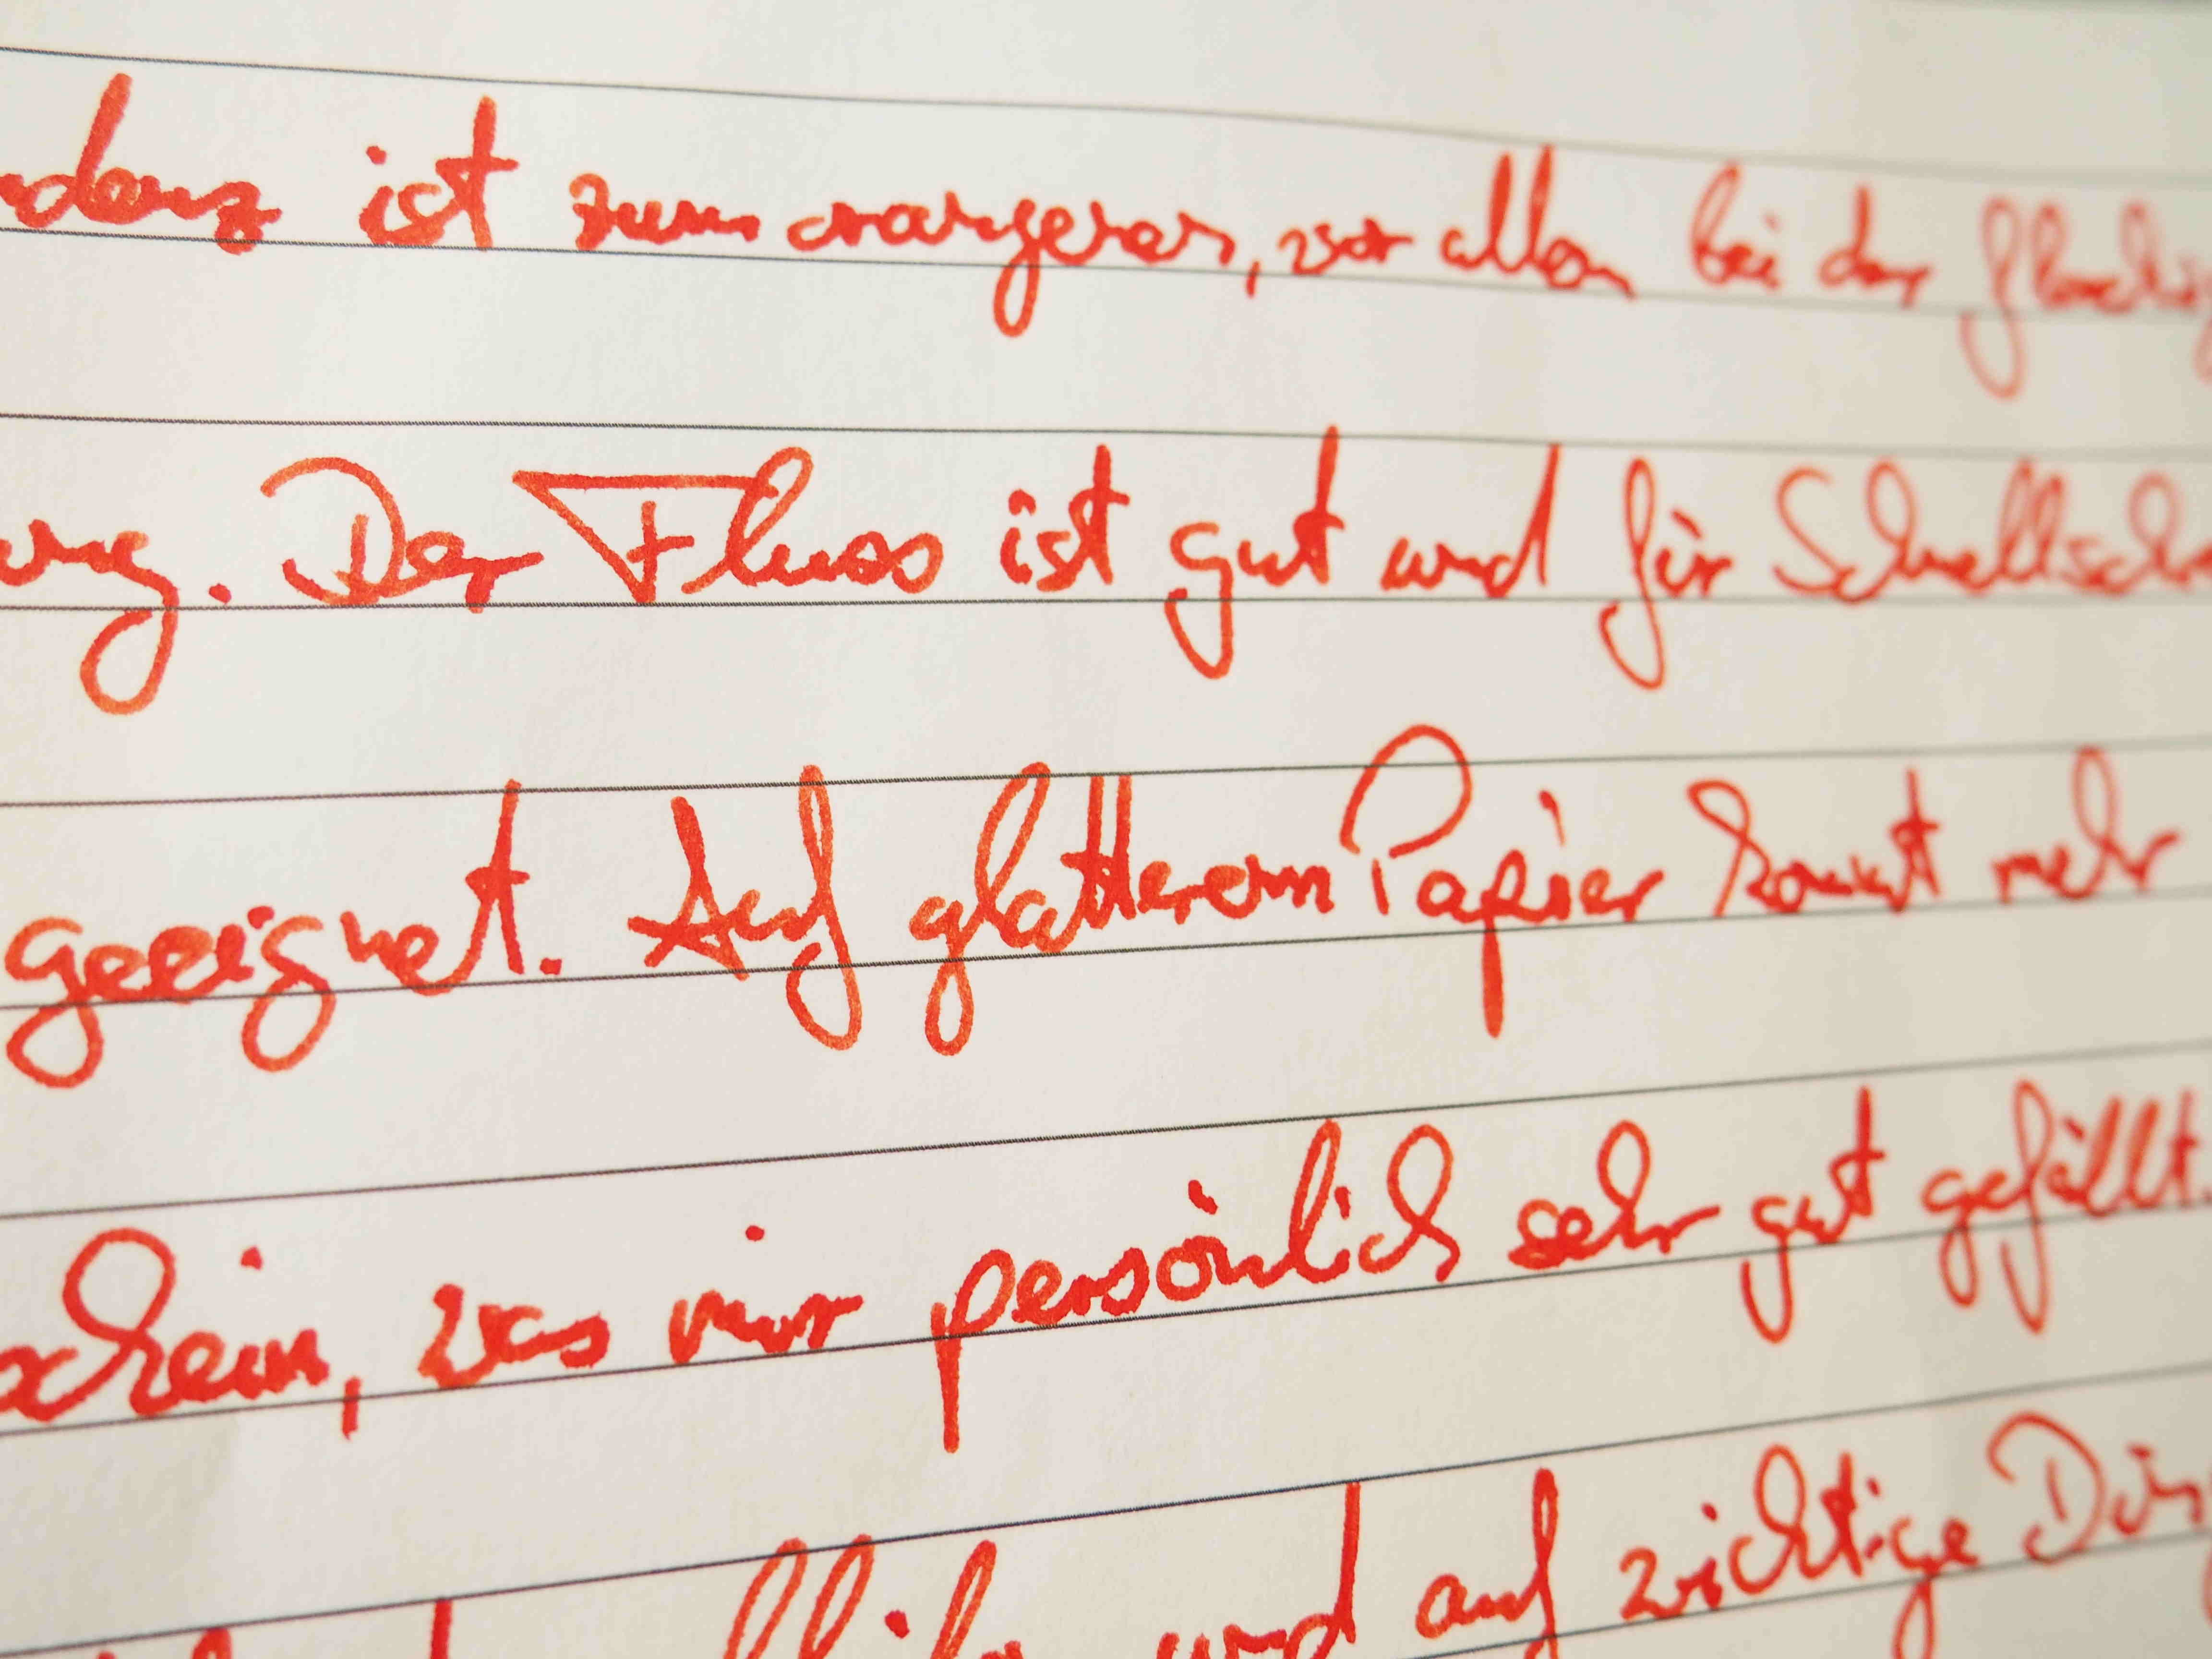 ist zum orangeren, vor allem bei der
ung. Der Fluss ist gut und für Schnellschr
geeignet. Auf glatterem Papier kommt mehr
schein, was mir persönlich sehr gut gefällt.
und auf wichtige Din